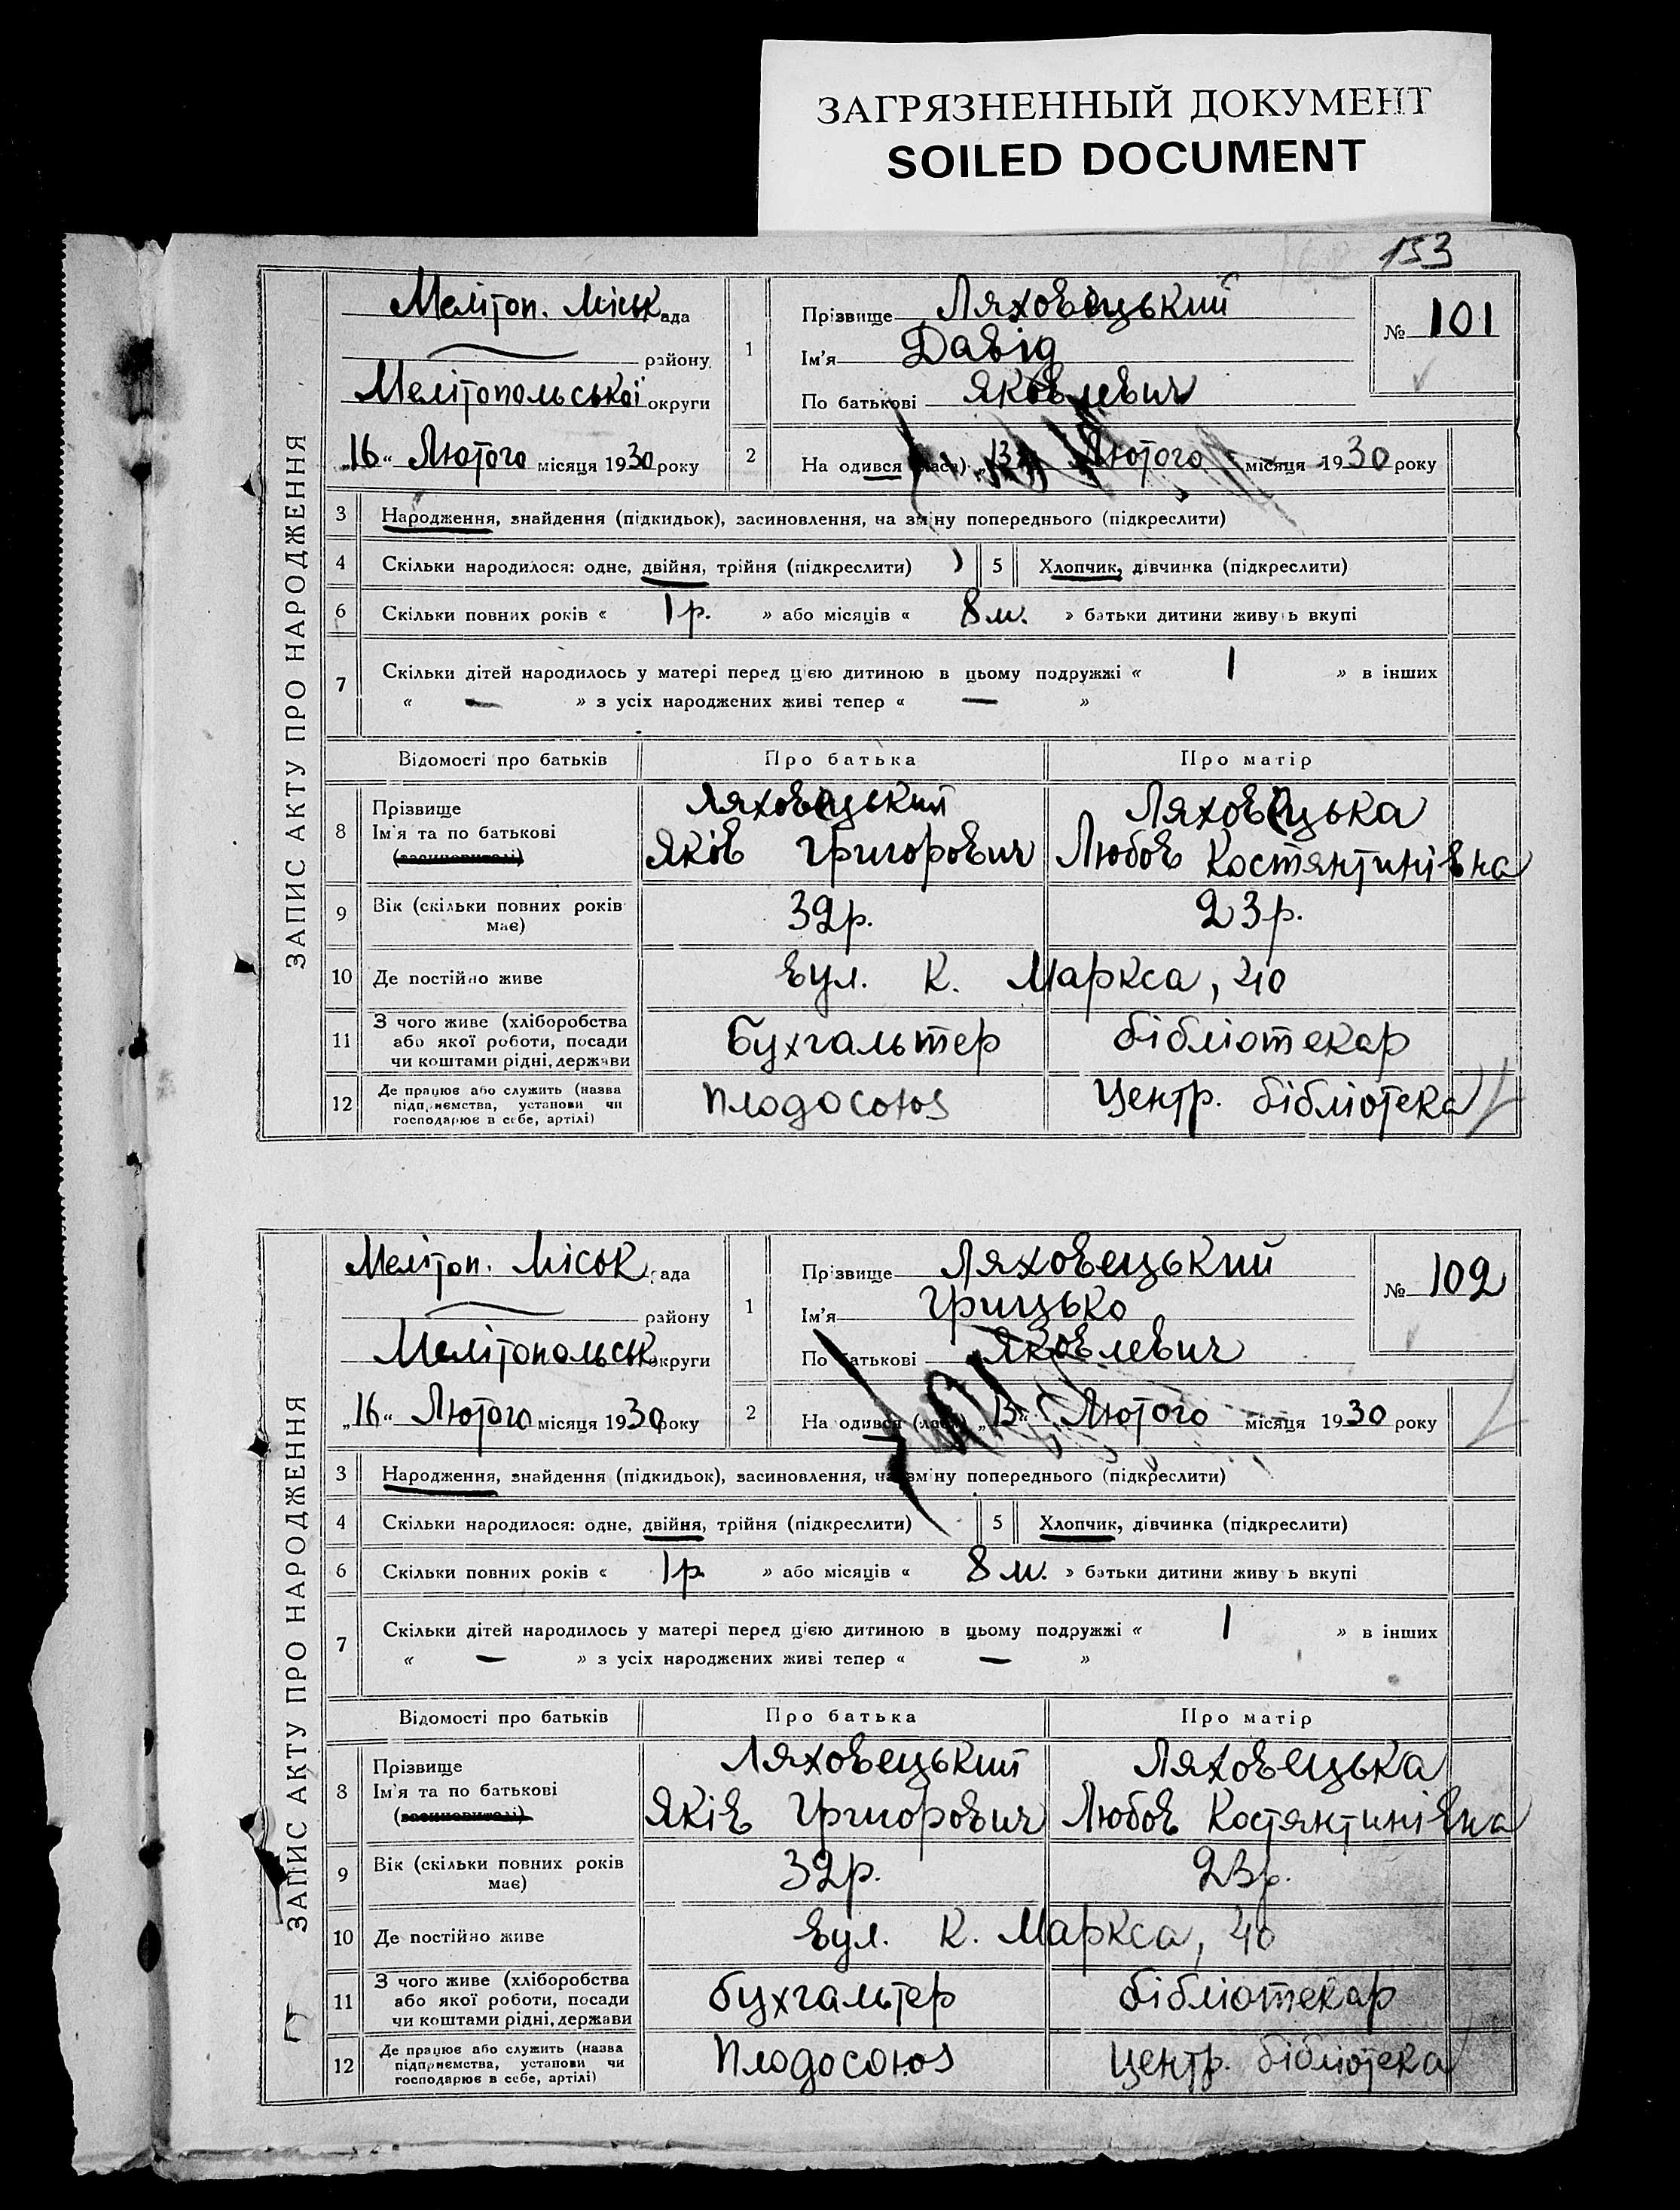 ЗАГРЯЗНЕННЫЙ ДОКУМЕНТ
SOILED DOCUMENT
153
ЗАПИС АКТУ ПРО НАРОДЖЕННЯ
Мелітоп. Міськ рада
району
Мелітопольської округи
„16“ Лютого місяця 1930 року
1
Прізвище Ляховецький
Ім'я Давід
По батькові Яковлевич
№ 101
2
На одився (лася) „13“ Лютого місяця 1930 року
3 Народження, знайдення (підкидьок), засиновлення, на зміну попереднього (підкреслити)
4 Скільки народилося: одне, двійня, трійня (підкреслити) 5 Хлопчик, дівчинка (підкреслити)
6 Скільки повних років « 1 р. » або місяців « 8 м. » батьки дитини живуть вкупі
7 Скільки дітей народилось у матері перед цією дитиною в цьому подружжі « 1 » в інших
« — » з усіх народжених живі тепер « — »
Відомості про батьків Про батька Про матір
8 Прізвище Ляховецький Ляховецька
Ім'я та по батькові Яків Григорович Любов Костянтинівна
(засиновителі)
9 Вік (скільки повних років має) 32 р. 23 р.
10 Де постійно живе вул. К. Маркса, 40
11 З чого живе (хліборобства або якої роботи, посади чи коштами рідні, держави Бухгальтер бібліотекар
12 Де працює або служить (назва підприємства, установи чи господарює в себе, артілі) Плодосоюз Центр. бібліотека
ЗАПИС АКТУ ПРО НАРОДЖЕННЯ
Мелітоп. Міськ рада
району
Мелітопольськ округи
„16“ Лютого місяця 1930 року
1
Прізвище Ляховецький
Ім'я Грицько
По батькові Яковлевич
№ 102
2
На одився (лася) „13“ Лютого місяця 1930 року
3 Народження, знайдення (підкидьок), засиновлення, на зміну попереднього (підкреслити)
4 Скільки народилося: одне, двійня, трійня (підкреслити) 5 Хлопчик, дівчинка (підкреслити)
6 Скільки повних років « 1 р » або місяців « 8 м. » батьки дитини живуть вкупі
7 Скільки дітей народилось у матері перед цією дитиною в цьому подружжі « 1 » в інших
« — » з усіх народжених живі тепер « — »
Відомості про батьків Про батька Про матір
8 Прізвище Ляховецький Ляховецька
Ім'я та по батькові Яків Григорович Любов Костянтинівна
(засиновителі)
9 Вік (скільки повних років має) 32 р. 23 р.
10 Де постійно живе вул. К. Маркса, 40
11 З чого живе (хліборобства або якої роботи, посади чи коштами рідні, держави бухгальтер бібліотекар
12 Де працює або служить (назва підприємства, установи чи господарює в себе, артілі) Плодосоюз Центр. бібліотека